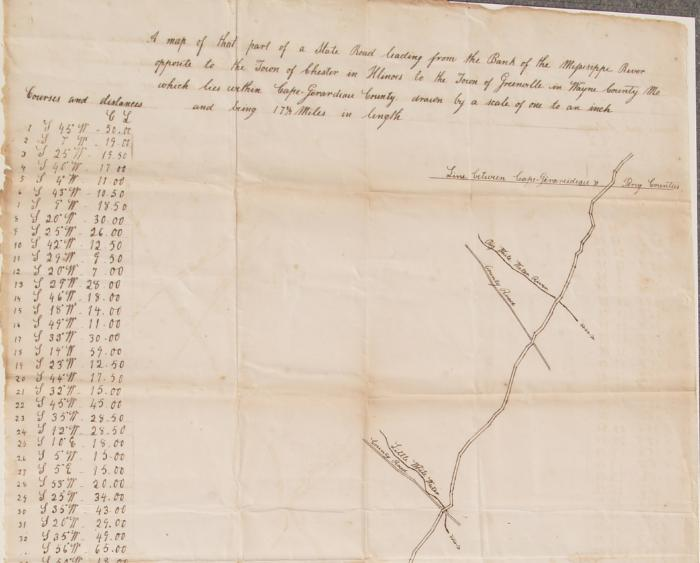 A map of that part of a State Road leading from the Bank of the Mississippi River
opposite to the Town of Chester in Illinois to the Town of Greenville in Wayne County Mo
which lies within Cape-Girardeau County drawn by a scale of one to an inch
and being 17¾ Miles in length
Courses and distances
C L
1 S 45° W - 50.00
2 S 7° W - 19.00
3 S 25° W - 19.50
4 S 40° W - 17.00
5 S 4° W 11.00
6 S 43° W - 10.50
7 S 9° W - 18.50
8 S 20° W - 30.00
9 S 25° W - 26.00
10 S 42° W - 12.50
11 S 29° W - 9.50
12 S 20° W - 7.00
13 S 29° W 28.00
14 S 46° W - 18.00
15 S 18° W - 14.00
16 S 49° W - 11.00
17 S 33° W - 30.00
18 S 19° W - 59.00
19 S 23° W - 12.50
20 S 44° W - 17.50
21 S 32° W - 15.00
22 S 45° W - 45.00
23 S 35° W - 28.50
24 S 12° W - 28.50
25 S 10° E - 18.00
26 S 5° W - 15.00
27 S 5° E - 15.00
28 S 55° W - 20.00
29 S 25° W - 34.00
30 S 35° W - 43.00
31 S 20° W - 29.00
32 S 35° W - 49.00
S 56° W - 65.00
Line between Cape-Girardeau & Perry Counties
Big White Water River
County Road
Little White Water
County Road